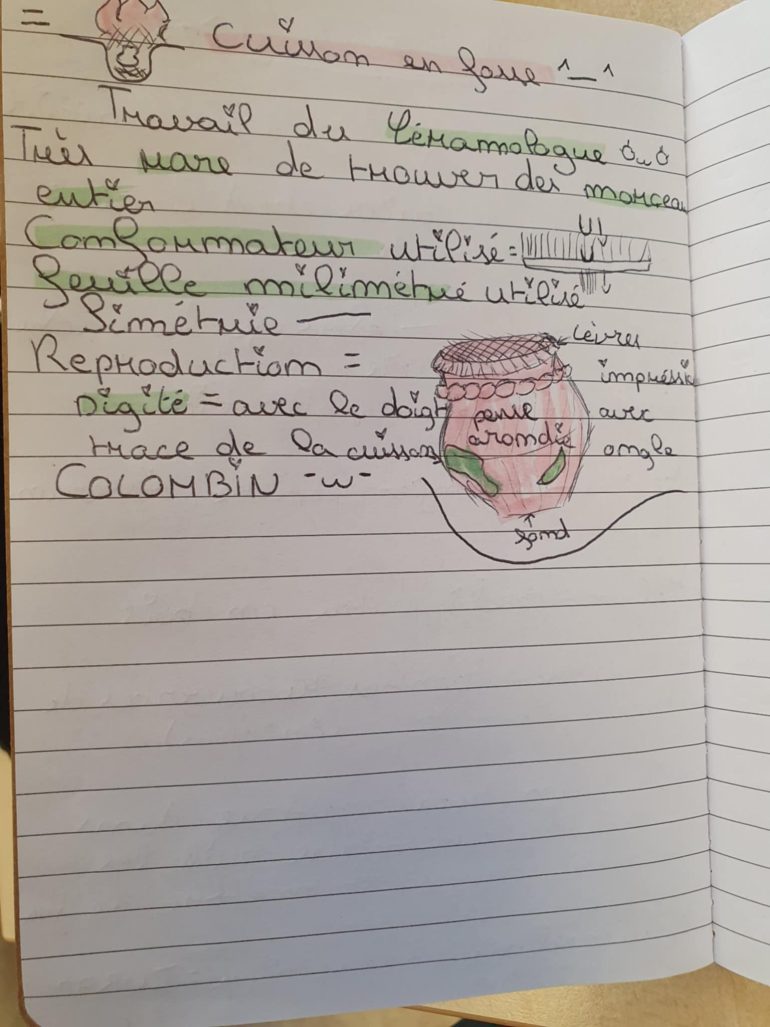 = Cuisson en fosse ^_^
Travail du Céramologue òuó
Très rare de trouver des morceau
entier
Conformateur utilisé =
feuille milimétré utilisé
Simétrie —
Reproduction =
Digité = avec le doigt
trace de la cuisson
COLOMBiN -w-
Lèvres
impréssio
avec
ongle
panse
arondie
fond